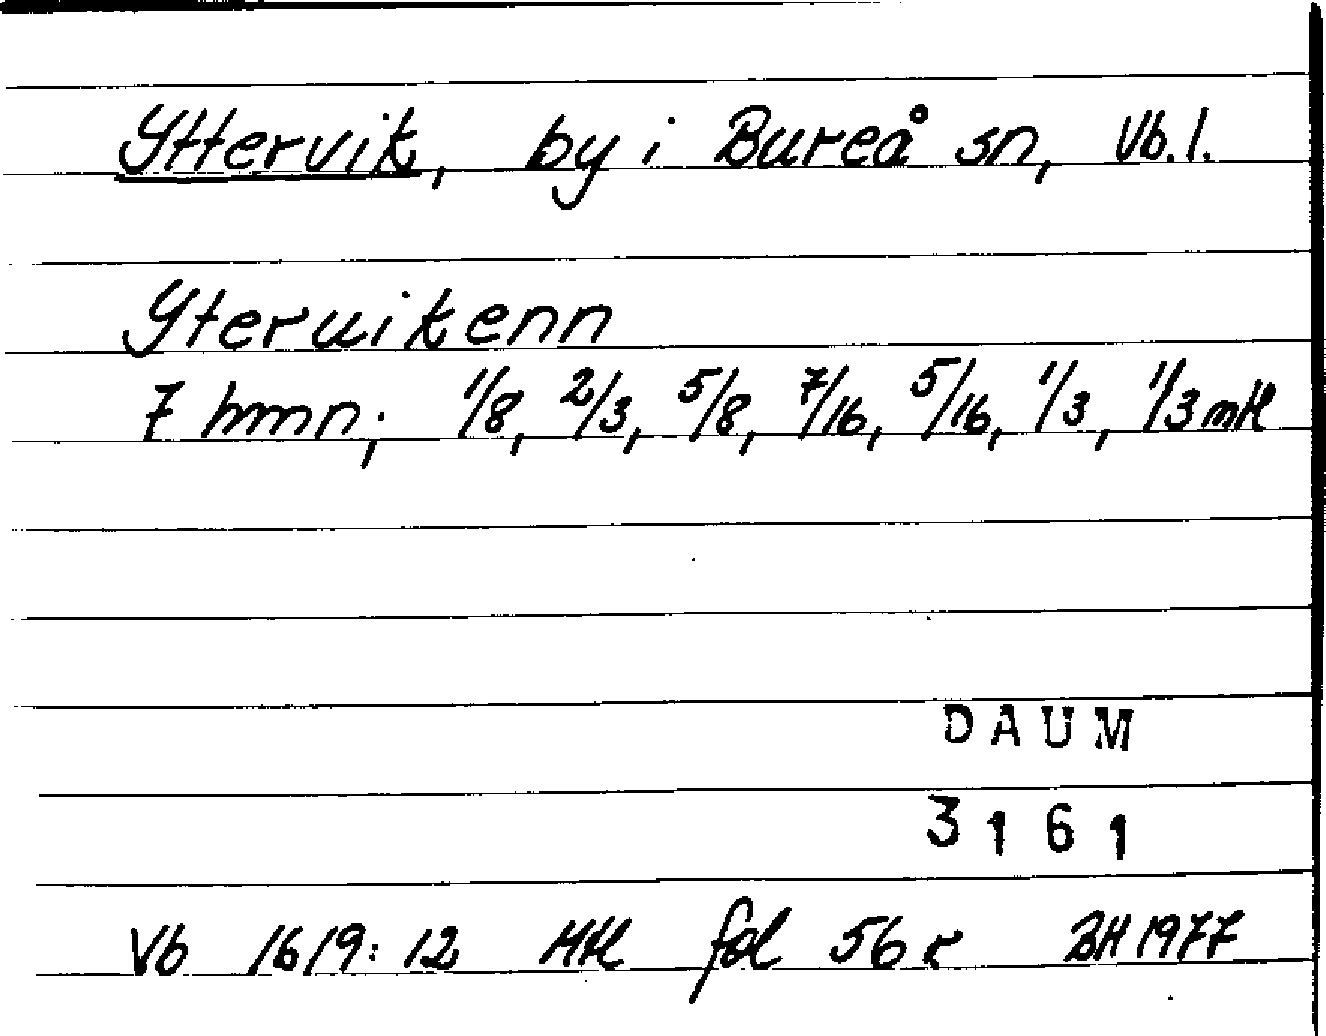 Yttervik, by i Bureå sn, Vb.l.
Yterwikenn
7 hmn; 1/8, 2/3, 5/8, 7/16, 5/16, 1/3, 1/3 mtl
DAUM
3161
Vb 1619:12 Mtl fol 56 r BH 1977